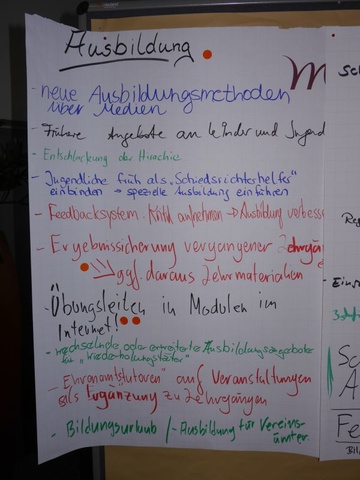 Ausbildung
- neue Ausbildungsmethoden
über Medien
- Frühere Angebote an Kinder und Jugend
- Entschlackung der Hirachie
- Jugendliche früh als „Schiedsrichterhelfer"
einbinden → spezielle Ausbildung einführen
- Feedbacksystem: Kritik aufnehmen → Ausbildung verbess
- Ergebnissicherung vergangener Lehrgän
ggf. daraus Lehrmaterialien
- Übungsleiten in Modulen im
Internet!
- wechselnde oder erweiterte Ausbildungsangebote
für „Wiederholungstäter"
- „Ehrenamtstutoren" auf Veranstaltungen
als Ergänzung zu Lehrgängen
- Bildungsurlaub / - Ausbildung für Vereins-
ämter